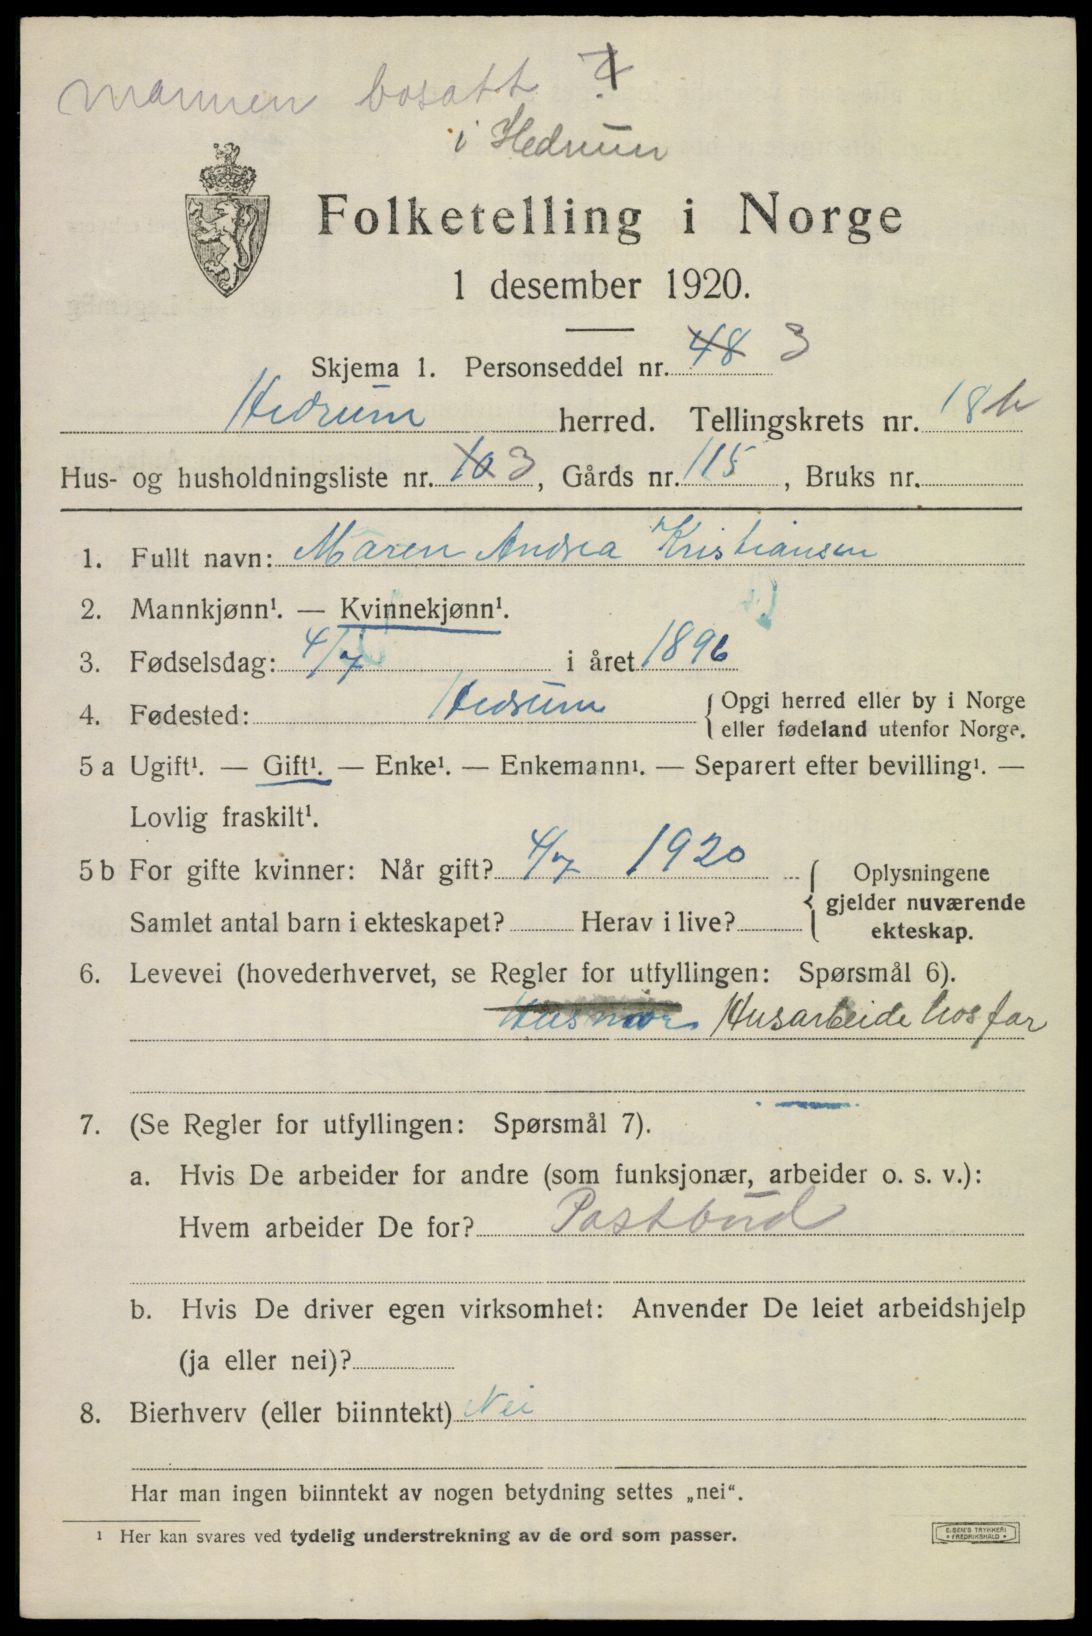 mannen bosatt
i Hedrum
Folketelling i Norge
1 desember 1920.
Skjema 1. Personseddel nr. 48 3
Hedrum herred. Tellingskrets nr. 18 b
Hus- og husholdningsliste nr. 10 3, Gårds nr. 115, Bruks nr.
1. Fullt navn: Maren Andrea Kristiansen
2. Mannkjønn¹. — Kvinnekjønn¹.
3. Fødselsdag: 4/7 i året 1896
4. Fødested: Hedrum { Opgi herred eller by i Norge
eller fødeland utenfor Norge.
5 a Ugift¹. — Gift¹. — Enke¹. — Enkemann¹. — Separert efter bevilling¹. —
Lovlig fraskilt¹.
5 b For gifte kvinner: Når gift? 4/7 1920 { Oplysningene
gjelder nuværende
ekteskap.
Samlet antal barn i ekteskapet? Herav i live?
6. Levevei (hovederhvervet, se Regler for utfyllingen: Spørsmål 6).
Husmor Husarbeide hos far
7. (Se Regler for utfyllingen: Spørsmål 7).
a. Hvis De arbeider for andre (som funksjonær, arbeider o. s. v.):
Hvem arbeider De for? Postbud
b. Hvis De driver egen virksomhet: Anvender De leiet arbeidshjelp
(ja eller nei)?
8. Bierhverv (eller biinntekt) Nei
Har man ingen biinntekt av nogen betydning settes „nei“.
¹ Her kan svares ved tydelig understrekning av de ord som passer.
E. SEM'S TRYKKERI
FREDRIKSHALD